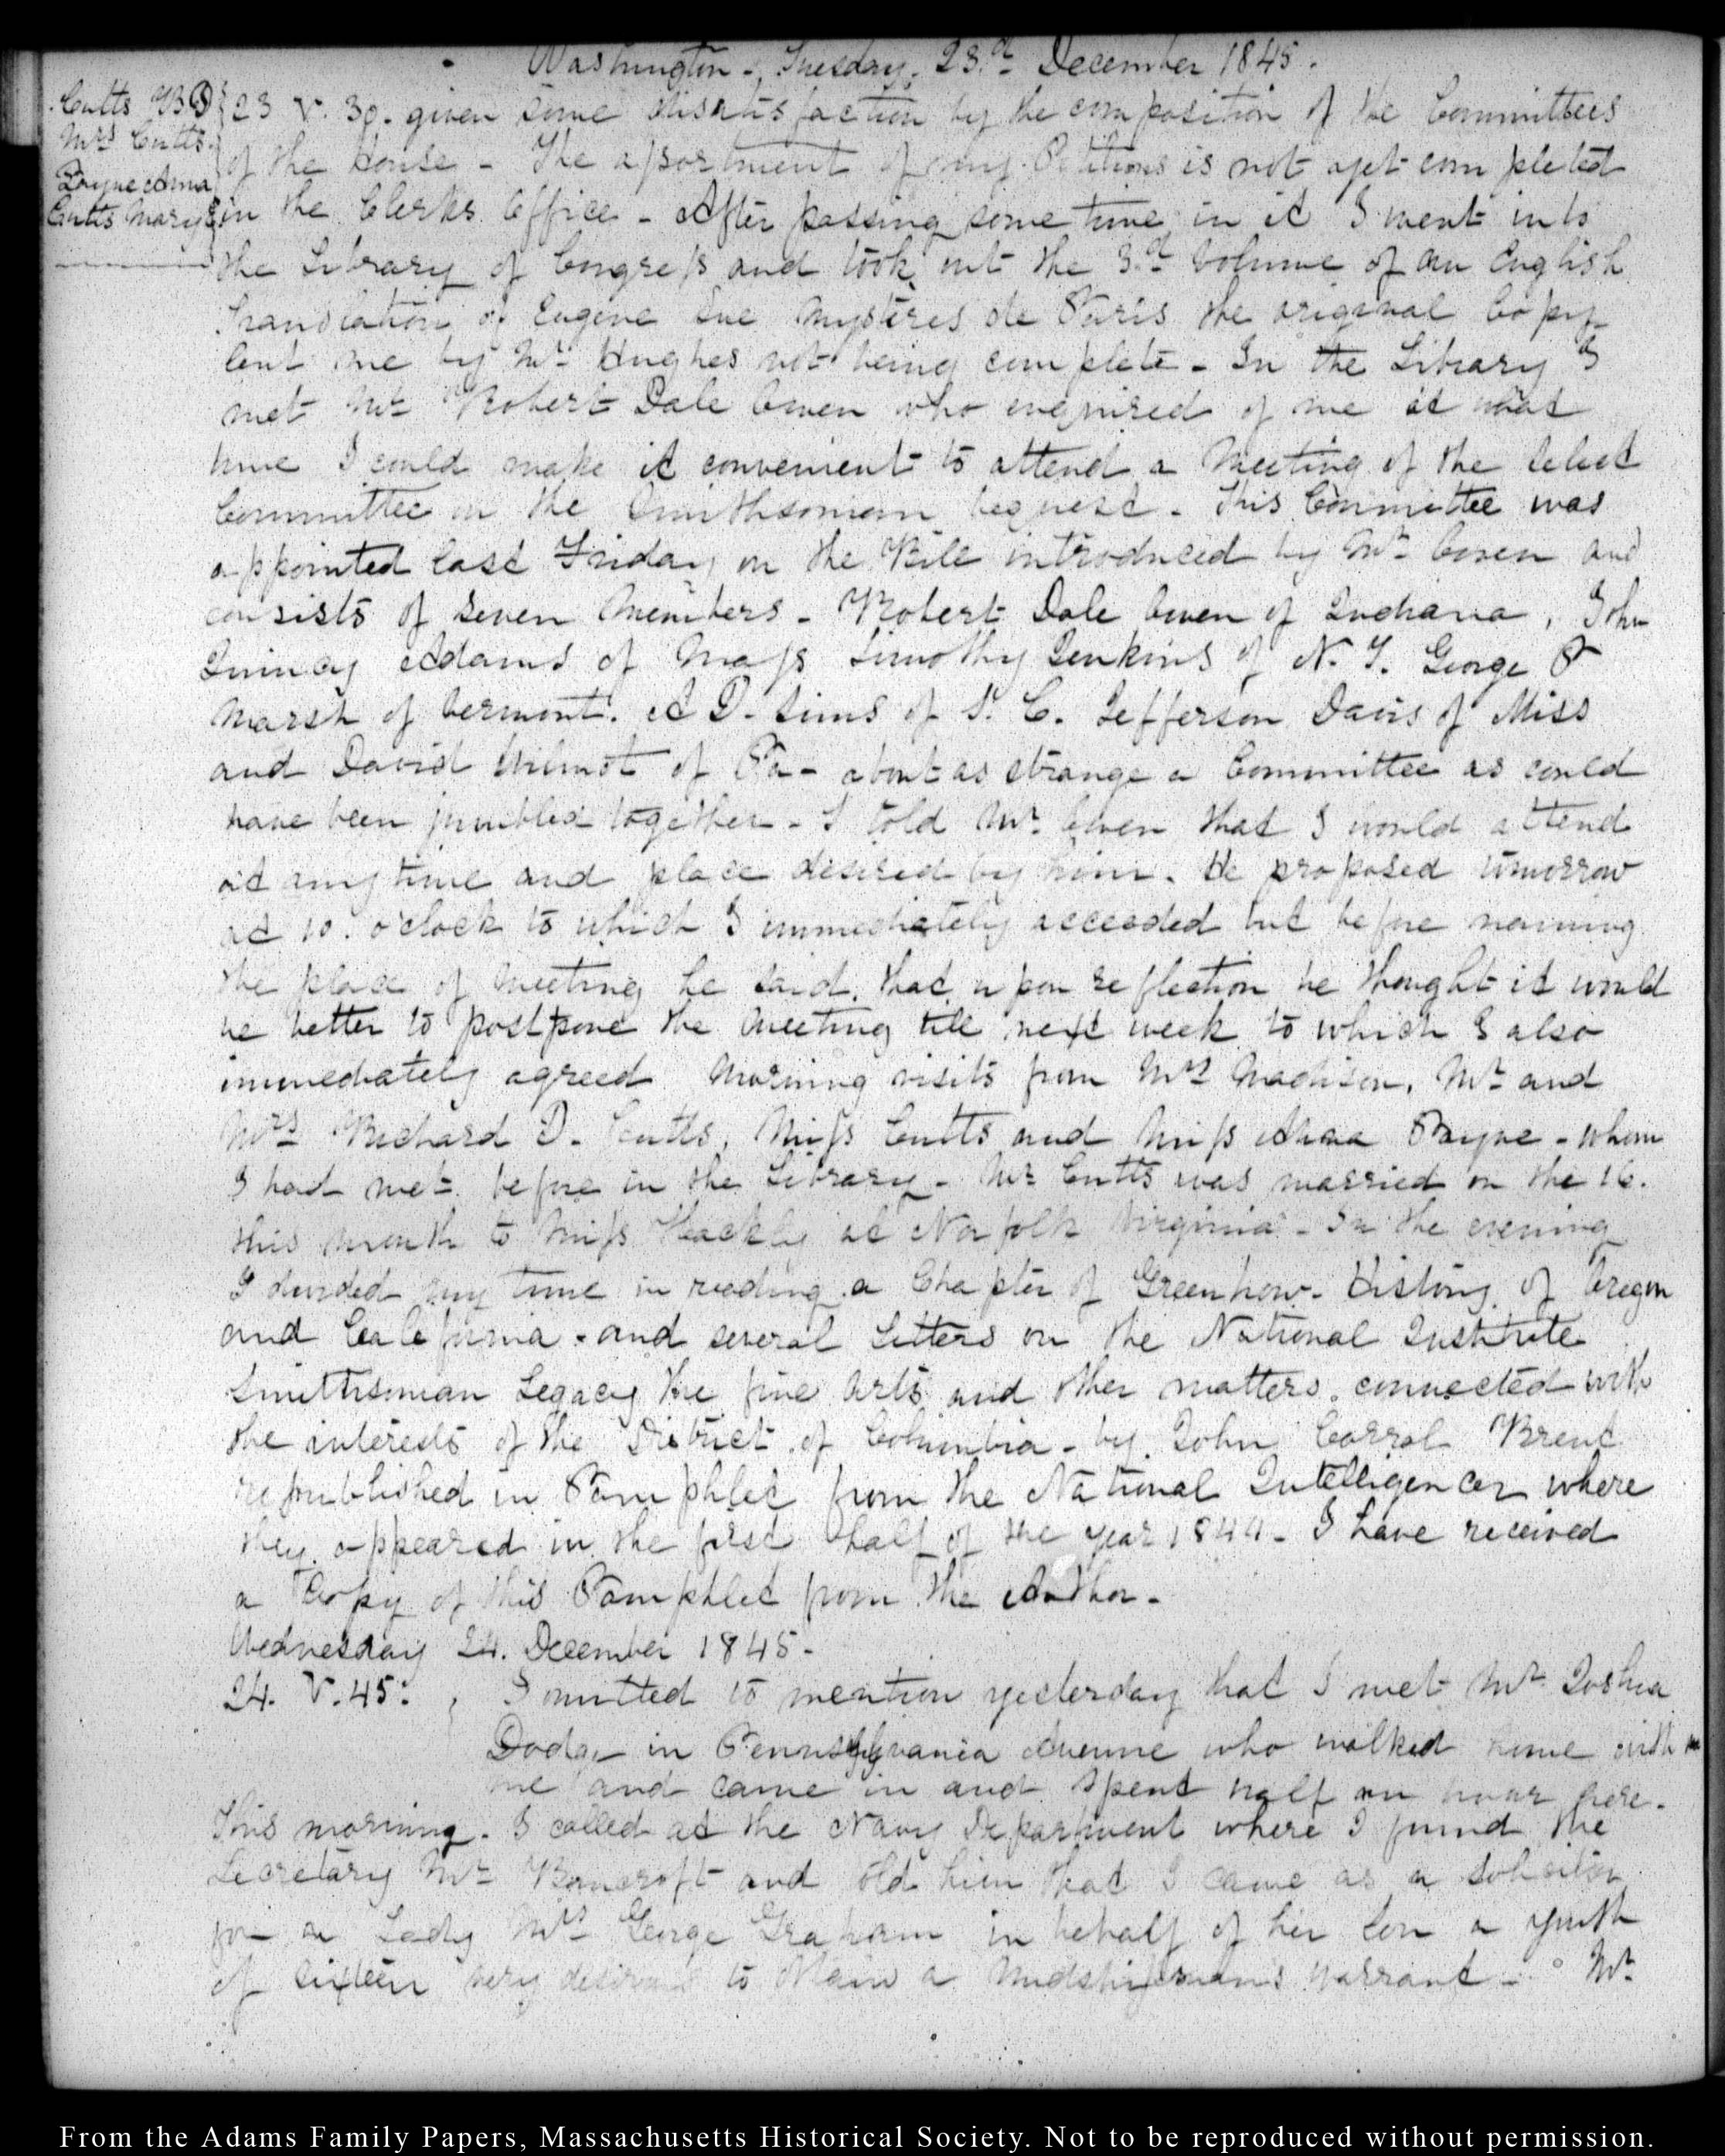 Washington, Tuesday. 23.d December 1845.
Cutts R D
Mrs Cutts.
Payne Anna
Cutts Mary
23 V. 30. given some dissatisfaction by the composition of the Committees
of the House - The assortment of my Petitions is not yet completed
in the Clerks Office - After passing some time in it I went into
the Library of Congress and took out the 3.d Volume of an English
Translation of Eugene Sue Mystères de Paris the original Copy
lent me by Mr Hughes not being complete - In the Library I
met Mr Robert Dale Owen who enquired of me at what
time I could make it convenient to attend a Meeting of the Select
Committee on the Smithsonian bequest - This Committee was
appointed last Friday on the Bill introduced by Mr Owen and
consists of seven Members - Robert Dale Owen of Indiana, John
Quincy Adams of Mass Timothy Jenkins of N. Y. George P
Marsh of Vermont. A D. Sims of S. C. Jefferson Davis of Miss
and David Wilmot of Pa - about as strange a Committee as could
have been jumbled together - I told Mr Owen that I would attend
at any time and place desired by him. He proposed tomorrow
at 10. o'clock to which I immediately acceeded but before naming
the place of meeting he said, that upon reflection he thought it would
be better to postpone the meeting till next week to which I also
immediately agreed Morning visits from Mrs Madison, Mr and
Mrs Richard D. Cutts, Miss Cutts and Miss Anna Payne - whom
I had met before in the Library - Mr Cutts was married on the 16.
this month to Miss Hackley at Norfolk Virginia - In the evening
I divided my time in reading a Chapter of Greenhow - History of Oregon
and California - and several Letters on the National Institute
Smithsonian Legacy the fine Arts and other matters connected with
the interests of the District of Columbia - by John Carrol Brent
republished in Pamphlet from the National Intelligencer where
they appeared in the first half of the year 1844 - I have received
a Copy of this Pamphlet from the Author -
Wednesday 24. December 1845 -
24. V. 45. I omitted to mention yesterday that I met Mr Joshua
Dodge in Pennsylvania Avenue who walked home with
me and came in and spent half an hour here.
This morning. I called at the Navy Department where I found the
Secretary Mr Bancroft and told him that I came as a Solicitor
for a Lady Mrs George Graham in behalf of her Son a youth
of sixteen very desirous to obtain a Midshipman's Warrant - Mr
From the Adams Family Papers, Massachusetts Historical Society. Not to be reproduced without permission.